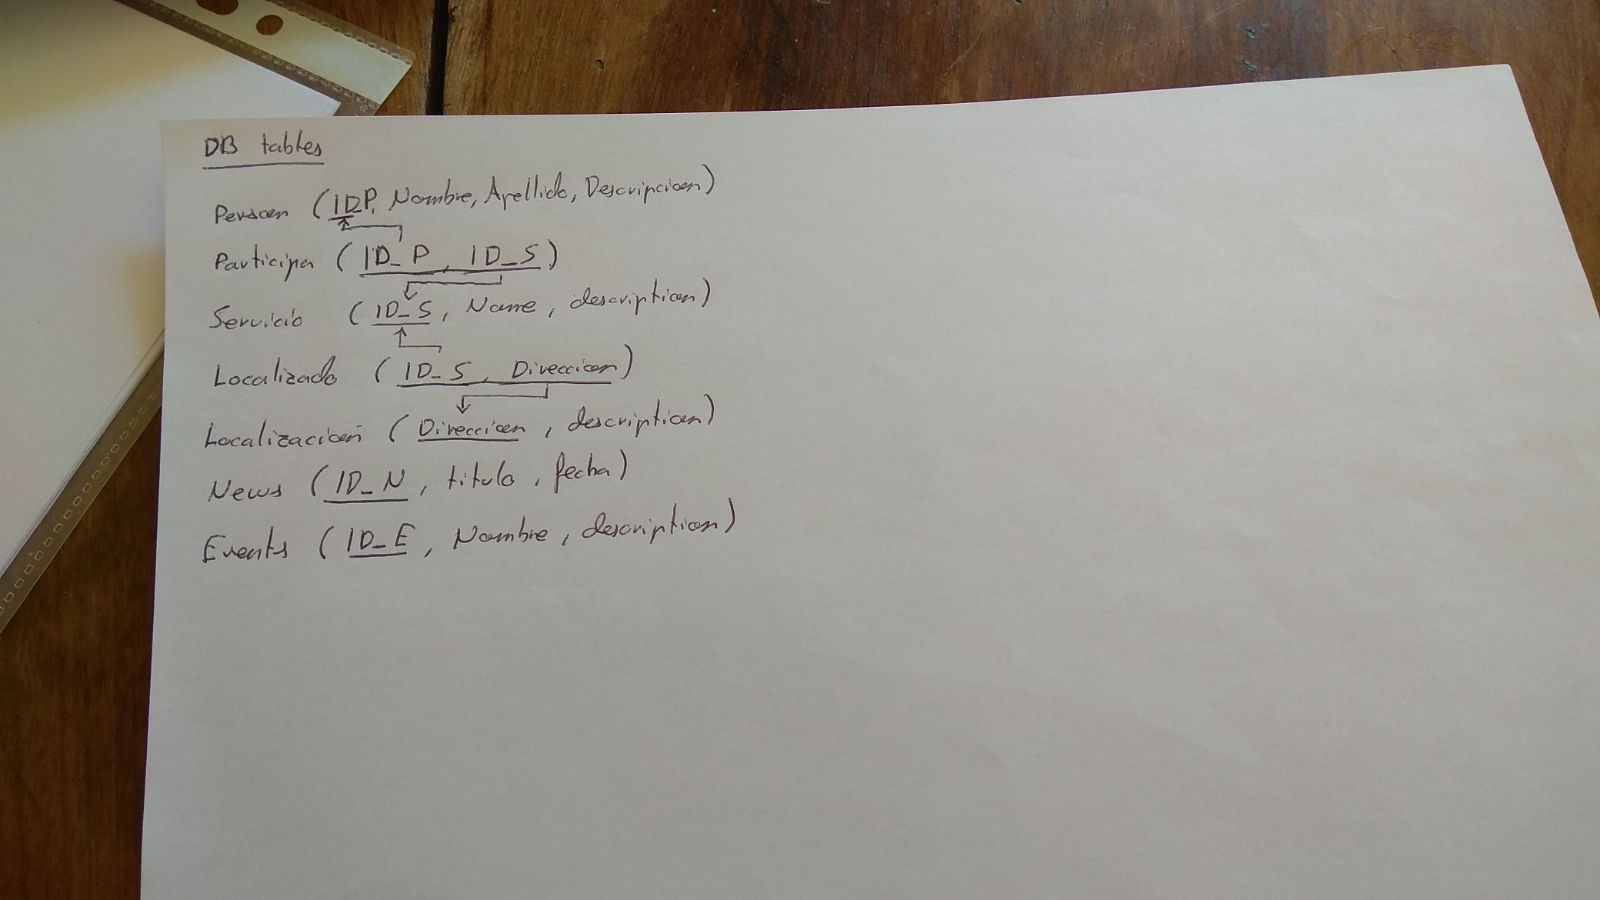 DB tables
Person (IDP, Nombre, Apellido, Descripcion)
Participa (ID_P, ID_S)
Servicio (ID_S, Name, description)
Localizado (ID_S, Direccion)
Localización (Direccion, description)
News (ID_N, titulo, fecha)
Events (ID_E, Nombre, description)